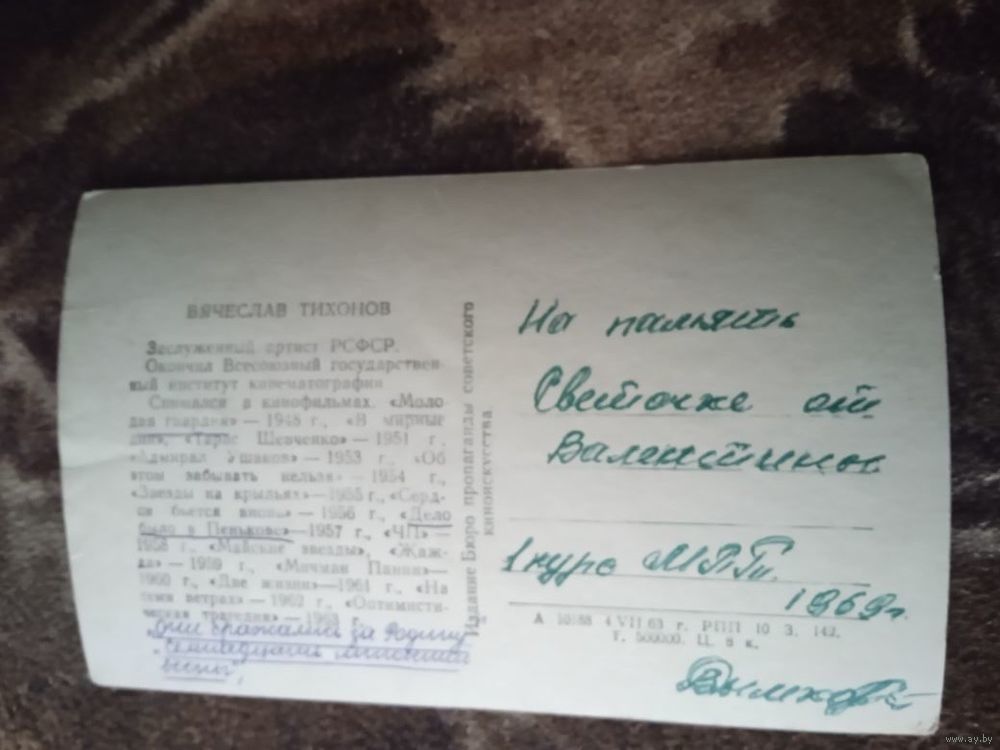 ВЯЧЕСЛАВ ТИХОНОВ
Заслуженный артист РСФСР.
Окончил Всесоюзный государствен-
ный институт кинематографии
Снимался в кинофильмах: «Моло
дая гвардия» — 1948 г., «В мирные
дни», «Тарас Шевченко» — 1951 г.,
«Адмирал Ушаков» — 1953 г., «Об
этом забывать нельзя» — 1954 г.,
«Звезды на крыльях» — 1955 г., «Серд-
це бьется вновь» — 1956 г., «Дело
было в Пенькове» — 1957 г., «ЧП» —
1958 г., «Майские звезды», «Жаж-
да» — 1959 г., «Мичман Панин» —
1960 г., «Две жизни» — 1961 г., «На
семи ветрах» — 1962 г., «Оптимисти-
ческая трагедия» — 1963 г.
"Они сражались за Родину"
"Семнадцать мгновений
весны",
Издание Бюро пропаганды советского
киноискусства.
На память
Светочке от
Валентины
1 курс
1969г.
А 10188 4/VII 63 г. РПП 10 З. 142.
Т. 500000. Ц. 8 к.
www.ay.by